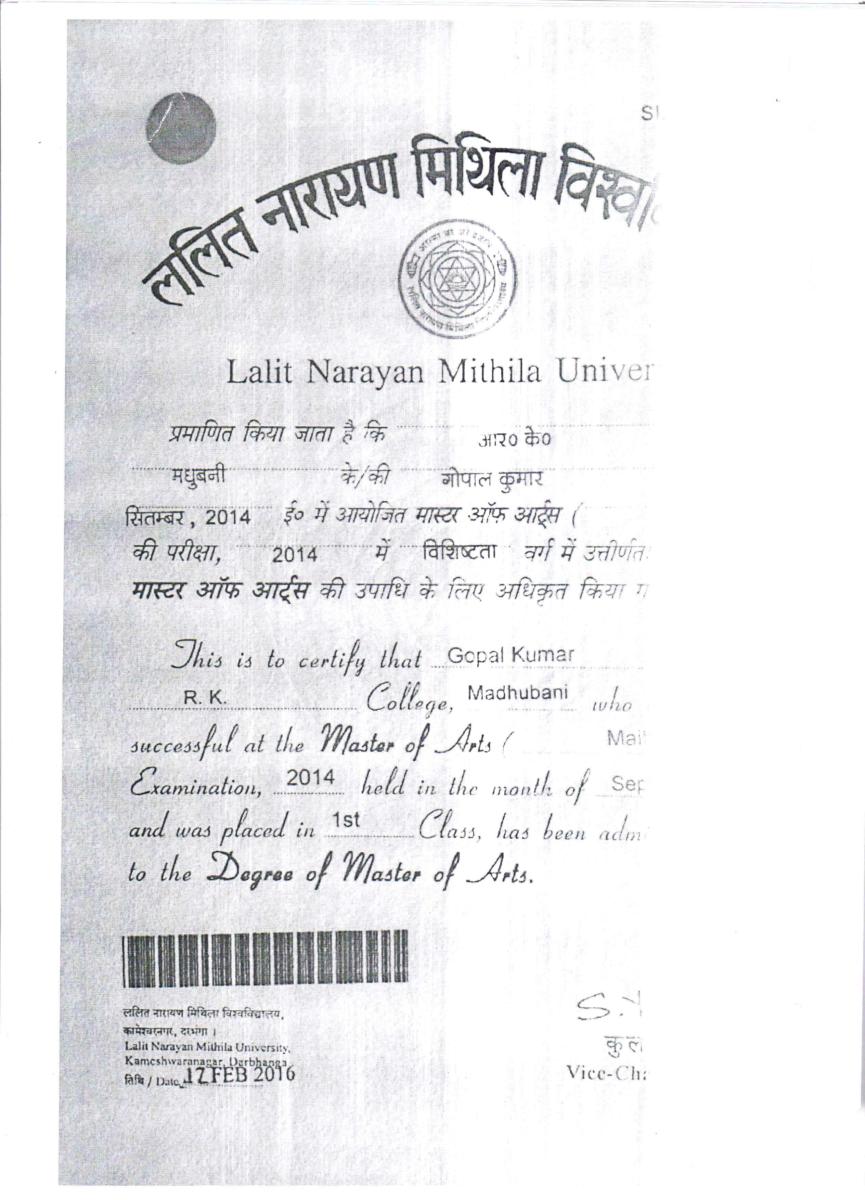 ललित नारायण मिथिला
Lalit Narayan Mithila
प्रमाणित किया जाता है कि आर० के०
मधुबनी के/की गोपाल कुमार
सितम्बर, 2014 ई० में आयोजित मास्टर ऑफ आर्ट्स (
की परीक्षा, 2014 में विशिष्टता वर्ग में
मास्टर ऑफ आर्ट्स की उपाधि के लिए अधिकृत किया
This is to certify that Gopal Kumar
R. K. College, Madhubani who
successful at the Master of Arts (
Examination, 2014 held in the month of
and was placed in 1st Class, has been
to the Degree of Master of Arts.
ललित नारायण मिथिला विश्वविद्यालय,
कामेश्वरनगर, दरभंगा ।
Lalit Narayan Mithila University,
Kameshwaranagar, Darbhanga
तिथि / Date 17 FEB 2016